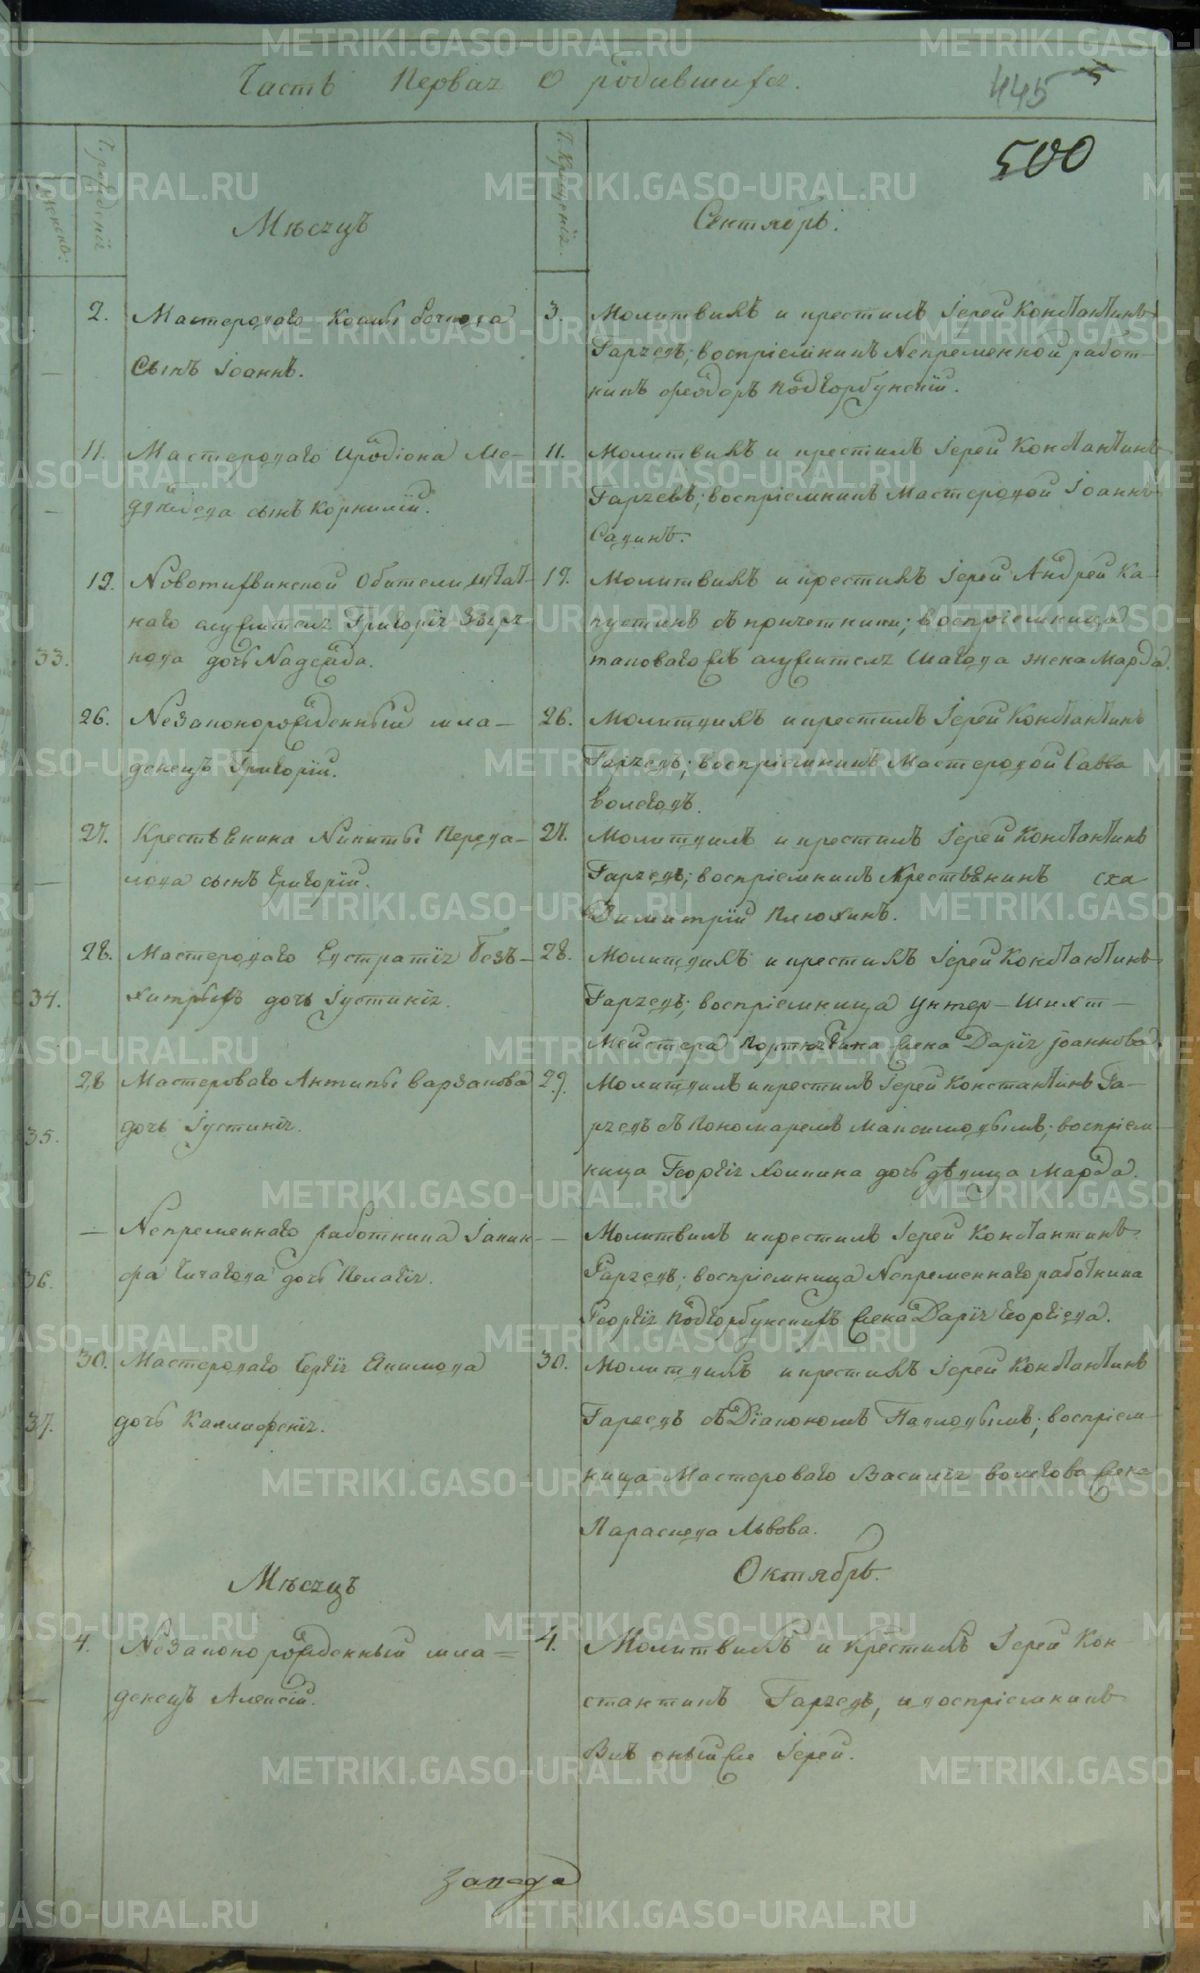 Часть Первая О родившихся.
445
500
Ч. рожденiя
Женска:
Ч. Крещенiя.
Мѣсяцъ
Сентябрь.
2. Мастероваго Козмы
Сынъ Iоаннъ.
3. Молитвилъ и крестилъ Iерей Константинъ
Гаряевъ; воспрiемникъ Непременной работ-
никъ Феодоръ Подкорбунскiй.
11. Мастероваго Иродiона Ме-
двѣдева сынъ Корнилiй.
11. Молитвилъ и крестилъ Iерей Константинъ
Гаряевъ; воспрiемникъ Мастеровой Iоаннъ
Савинъ.
33.
19. Новотихвинской Обители штат-
наго служителя Григорiя Звѣр-
кова дочь Надежда.
19. Молитвилъ и крестилъ Iерей Андрей Ка-
пустинъ съ причетники; воспрiемница
таковаго жъ служителя Шагова жена Марѳа.
26. Незаконорожденный мла-
денецъ Григорiй.
26. Молитвилъ и крестилъ Iерей Константинъ
Гаряевъ; воспрiемникъ Мастеровой Савва
Волеговъ.
27. Крестьянина Никиты Перева-
лова сынъ Григорiй.
27. Молитвилъ и крестилъ Iерей Константинъ
Гаряевъ; воспрiемникъ Крестьянинъ
Димитрiй Плюхинъ.
34.
28. Мастероваго Евстратiя Безъ-
хитрыхъ дочь Iустинiя.
28. Молитвилъ и крестилъ Iерей Константинъ
Гаряевъ; воспрiемница Унтер-Шихт-
Мейстера Портнягина жена Дарiя Iоаннова.
35.
28 Мастероваго Антипы Варзакова
дочь Iустинiя.
29. Молитвилъ и крестилъ Iерей Константинъ Га-
ряевъ съ Пономаремъ Максимовымъ; воспрiем-
ница Георгiя Хомкина дочь дѣвица Марѳа.
36.
— Непременнаго работника Iакин-
фа Чигагова дочь Пелагiя.
— Молитвилъ и крестилъ Iерей Константинъ
Гаряевъ; воспрiемница Непременнаго работника
Георгiя Подкорбунскихъ жена Дарiя Георгiева.
37.
30. Мастероваго Сергiя Екимова
дочь Каллисфенiя.
30. Молитвилъ и крестилъ Iерей Константинъ
Гаряевъ съ Дiакономъ Павловымъ; воспрiем-
ница Мастероваго Василiя Волегова жена
Параскева Львова.
Мѣсяцъ
Октябрь.
4. Незаконорожденный мла-
денецъ Алексiй.
4. Молитвилъ и Крестилъ Iерей Кон-
стантинъ Гаряевъ, и воспрiемникъ
былъ оный же Iерей.